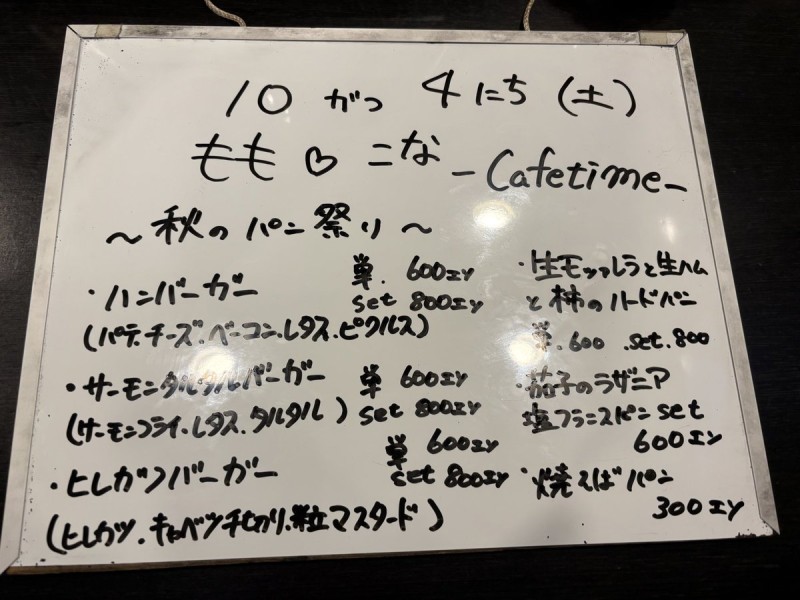 10がつ 4にち (土)
もも♡こな -Cafetime-
～秋のパン祭り～
・ハンバーガー 単. 600エン
set 800エン
(パテ.チーズ.ベーコン.レタス.ピクルス)
・サーモンタルタルバーガー 単 600エン
set 800エン
(サーモンフライ.レタス.タルタル)
・ヒレカツバーガー 単 600エン
set 800エン
(ヒレカツ.キャベツ千切り.粒マスタード)
・生モッツァレラと生ハム
と柿のハードパン
単.600 .set.800
・茄子のラザニア
塩フランスパン set
600エン
・焼そばパン
300エン